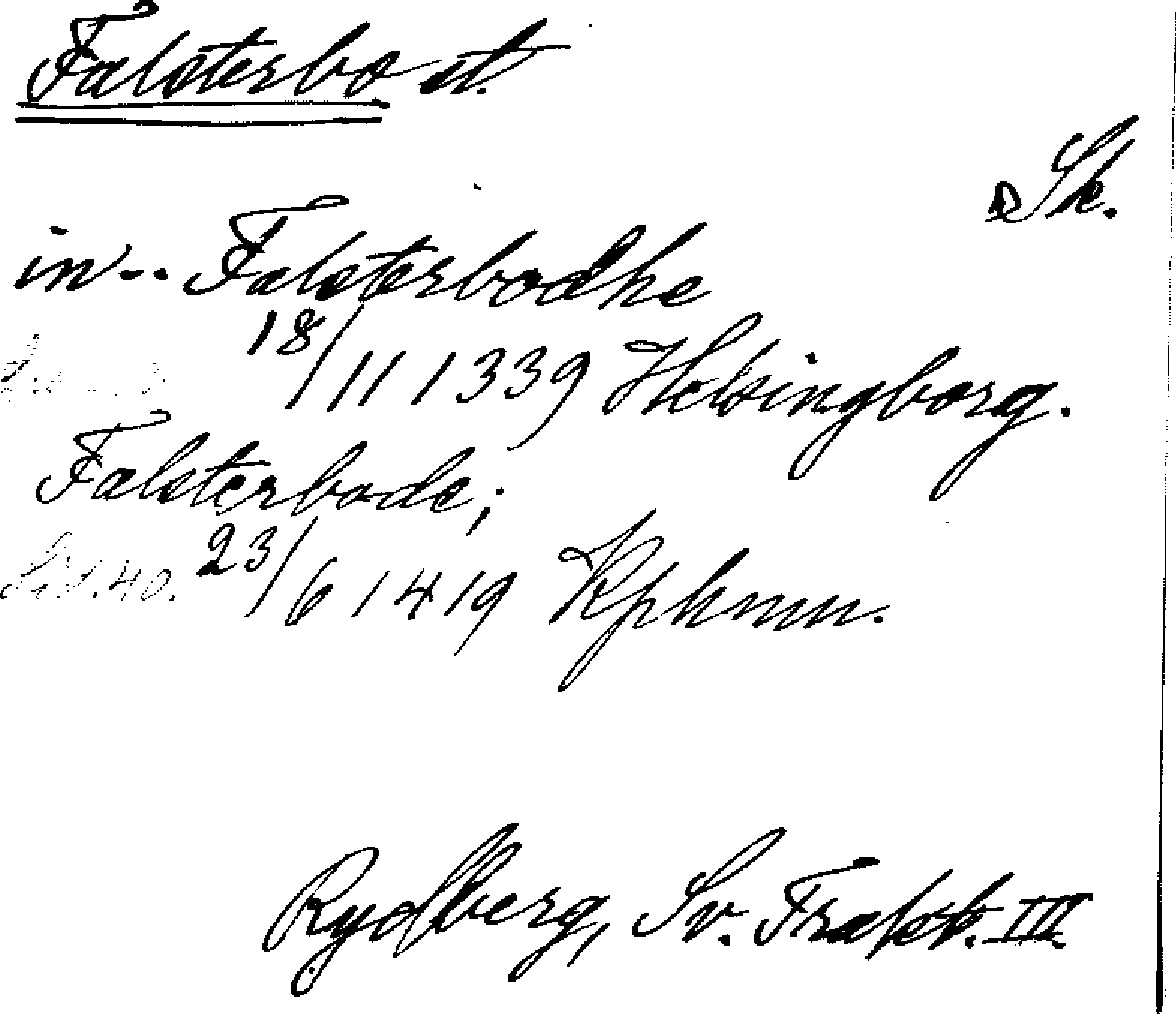 Falsterbo st.
Sk.
in-- Falsterbodhe
18/11 1339 Helsingborg.
Falsterbode;
23/6 1419 Kphmn.
Rydberg, Sv. Trakt. III